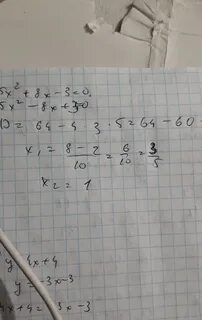 5x² + 8x - 3 = 0,
5x² - 8x + 3 = 0
D = 64 - 4 3 · 5 = 64 - 60
x₁ = (8 - 2)/10 = 6/10 = 3/5
x₂ = 1
y 4x + 4
y = -3x - 3
4x + 4 = 3x - 3